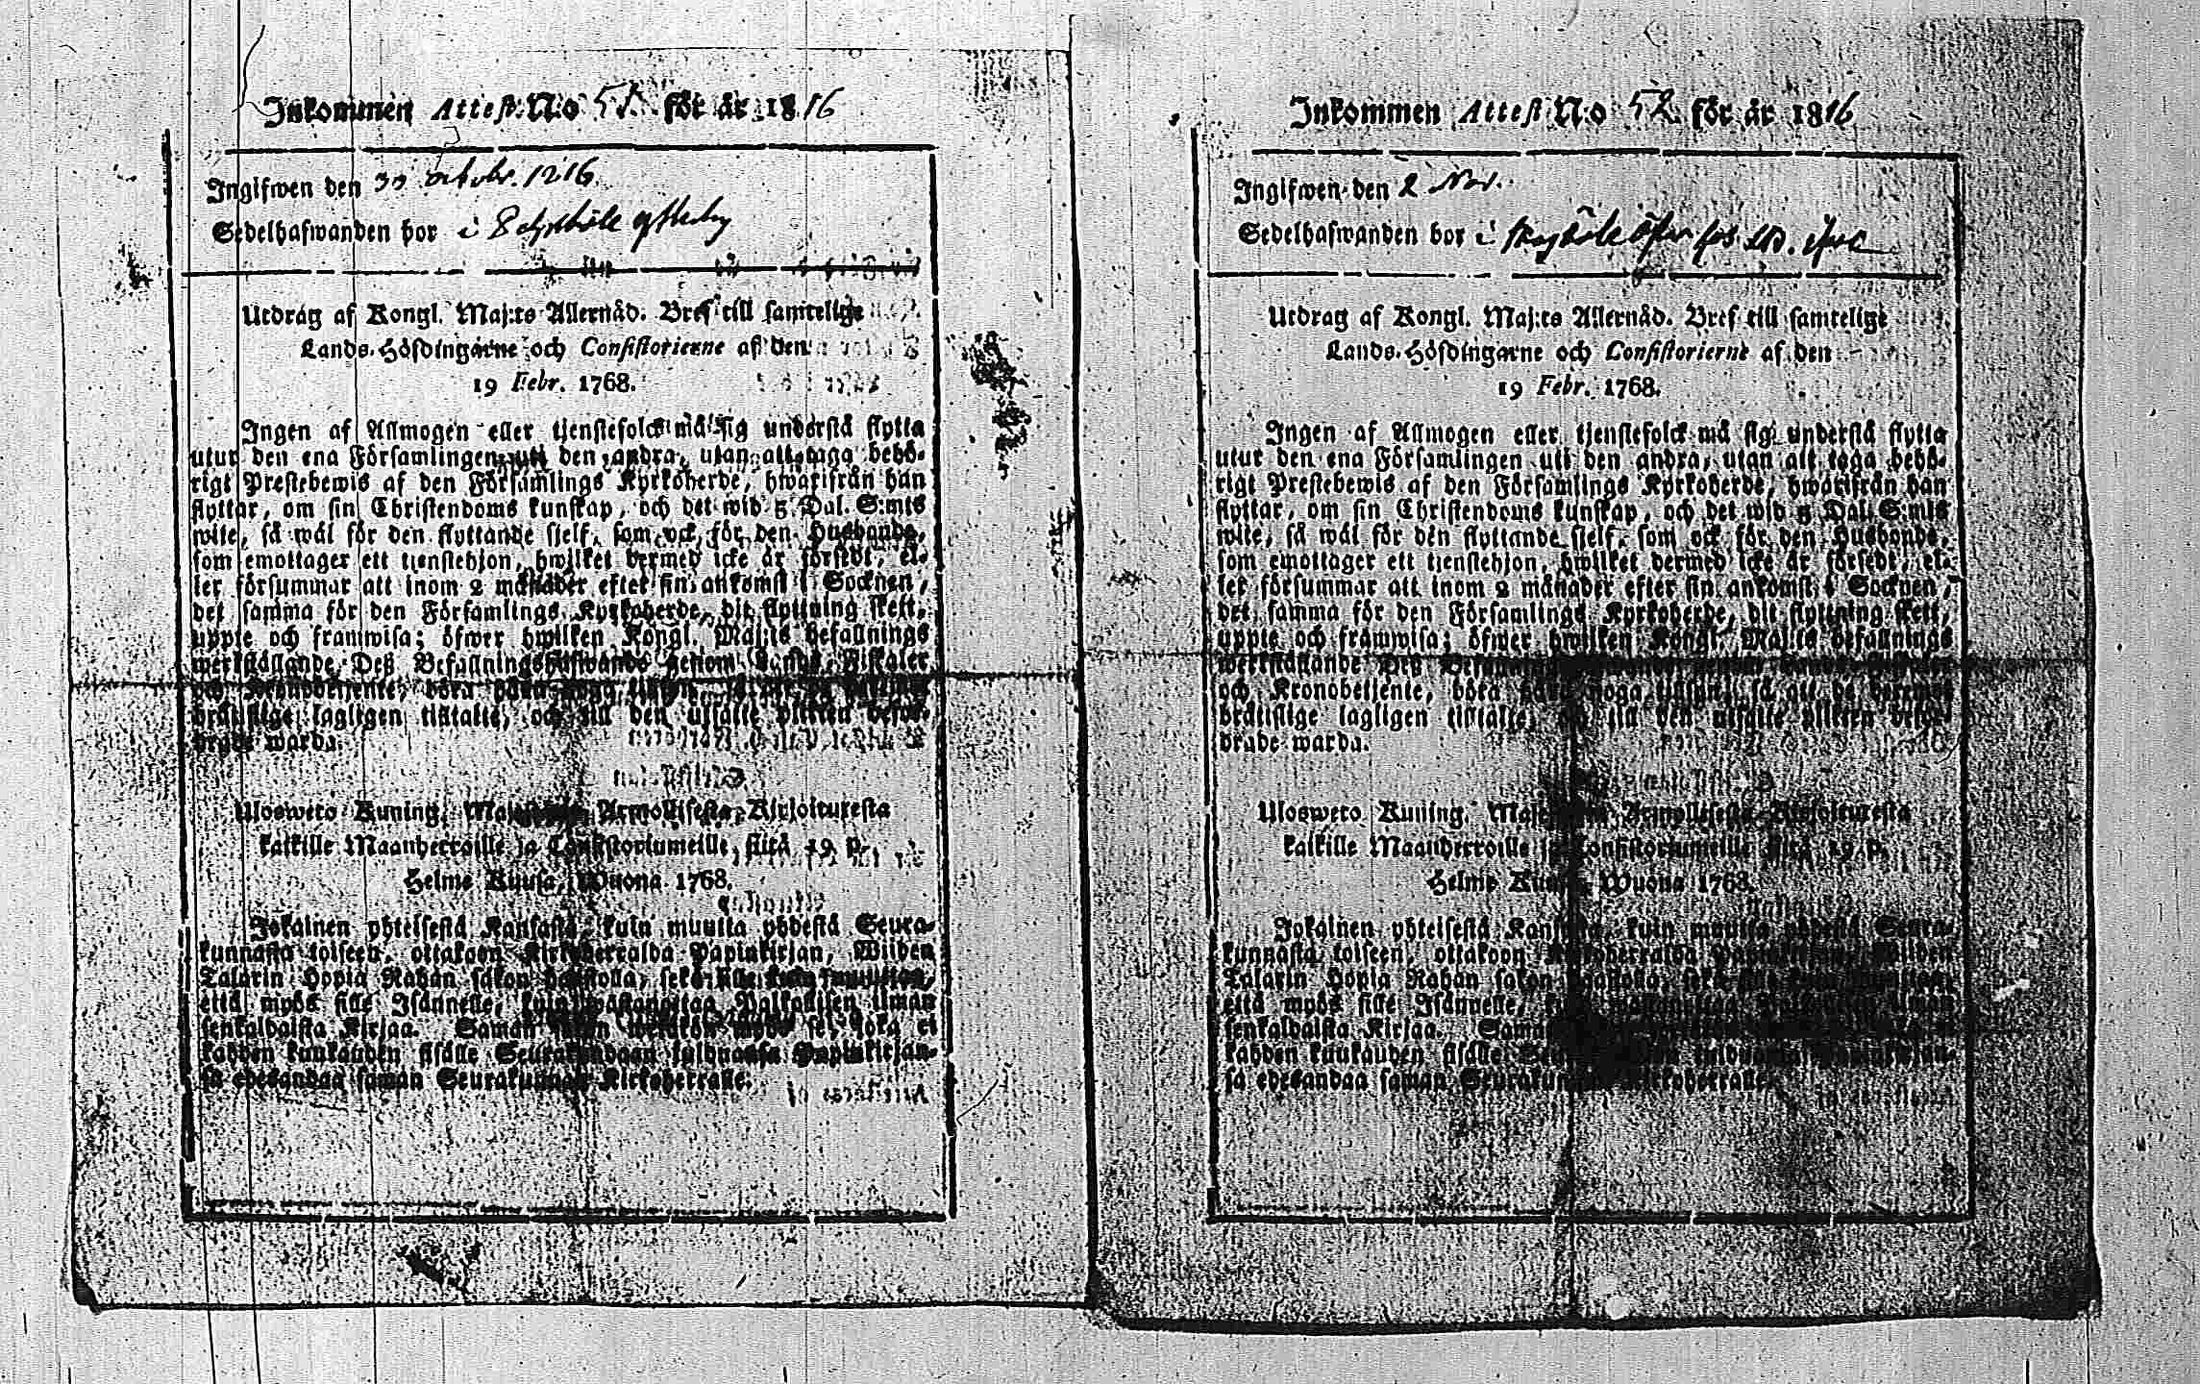 Inkommen Attest. N:o för år 1816
Ingifwen den 30 octobr. 1816
Sedelhafwanden bor i
Utdrag af Kongl. Maj:ts Allernåd. Bref till samtelige
Lands-Höfdingarne och Consistorierne af den
19 Febr. 1768.
Ingen af Allmogen eller tjenstefolck må sig understå flytta
utur den ena Församlingen uti den andra, utan att taga behö-
rigt Prestebewis af den Församlings Kyrkoherde, hwarifrån han
flyttar, om sin Christendoms kunskap, och det wid 5 Dal. S:mts
wite, så wäl för den flyttande sjelf, som ock för den Husbonde,
som emottager ett tjenstehjon, hwilket dermed icke är försedt, el-
ler försummar att inom 2 månader efter sin ankomst i Socknen,
det samma för den Församlings Kyrkoherde, dit flyttning skett,
uppte och framwisa; öfwer hwilken Kongl. Maj:ts befallnings
werkställande Deß Befallningshafwande genom Lands-Fiskaler
och Kronobetjente, böra
brättslige lagligen tilltalte, och till den utsatte plikten befor-
drade warda.
Ulosweto Kuning. Armollisesta Kirjoituresta
kaikille Maanherroille ja Consistoriumeille, siitä 19 p.
Helme Kuusa, Wuona 1768.
Jokainen yhteisestä Kansasta, kuin muutta yhdestä Seura-
kunnasta toiseen, ottakoon Kirkoherralda Papinkirjan, Wiiden
Talarin Hopia Rahan sakon haastolla, sekä sille kuin muuttaa,
että myös sille Isännelle, kuin wastanottaa Palkollisen ilman
senkaldaista Kirjaa. Saman myös se, joka ei
kahden kuukauden sisälle Seurakundaan tulduansa Papinkirjan-
sa edesandaa saman Seurakunnan Kirkoherralle.
Inkommen Attest N:o 52 för år 1816
Ingifwen den 2 Nov.
Sedelhafwanden bor i
Utdrag af Kongl. Maj:ts Allernåd. Bref till samtelige
Lands-Höfdingarne och Consistorierne af den
19 Febr. 1768.
Ingen af Allmogen eller tjenstefolck må sig understå flytta
utur den ena Församlingen uti den andra, utan att taga behö-
rigt Prestebewis af den Församlings Kyrkoherde, hwarifrån han
flyttar, om sin Christendoms kunskap, och det wid 5 Dal. S:mts
wite, så wäl för den flyttande sjelf, som ock för den Husbonde,
som emottager ett tjenstehjon, hwilket dermed icke är försedt, el-
ler försummar att inom 2 månader efter sin ankomst i Socknen,
det samma för den Församlings Kyrkoherde, dit flyttning skett,
uppte och framwisa; öfwer hwilken Kongl. Maj:ts befallnings
werkställande Deß
och Kronobetjente, böra noga tillsyn, så att de
brättslige lagligen tilltalte, och till den utsatte plikten befor-
drade warda.
Ulosweto Kuning. Armollisesta Kirjoituresta
kaikille Maanherroille ja Consistoriumeille siitä 19 p.
Helme Wuona 1768.
Jokainen yhteisestä kuin muutta yhdestä Seura-
kunnasta toiseen, ottakoon Kirkoherralda Wiiden
Talarin Hopia Rahan sakon
että myös sille Isännelle, ilman
senkaldaista Kirjaa. Saman
kahden kuukauden sisälle tulduansa Papinkirjan-
sa edesandaa saman Seurakunnan Kirkoherralle.